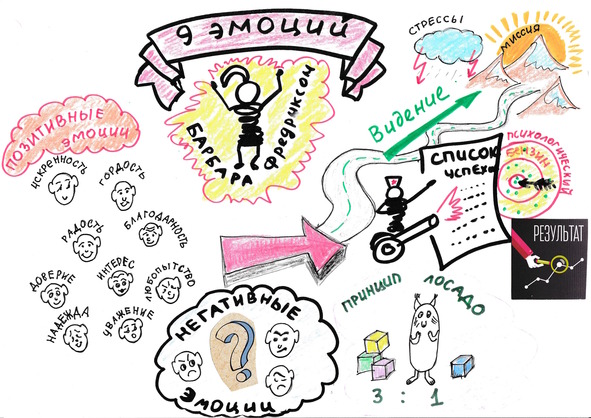 9 ЭМОЦИЙ
БАРБАРА
ФРЕДРИКСОН
СТРЕССЫ
МИССИЯ
Видение
ПОЗИТИВНЫЕ
ЭМОЦИИ
ИСКРЕННОСТЬ
ГОРДОСТЬ
РАДОСТЬ
БЛАГОДАРНОСТЬ
ДОВЕРИЕ
ИНТЕРЕС
ЛЮБОПЫТСТВО
НАДЕЖДА
УВАЖЕНИЕ
СПИСОК
УСПЕХА
ПСИХОЛОГИЧЕСКИЙ
БЕНЗИМ
РЕЗУЛЬТАТ
НЕГАТИВНЫЕ
?
ЭМОЦИИ
ПРИНЦИП ЛОСАДО
3 : 1